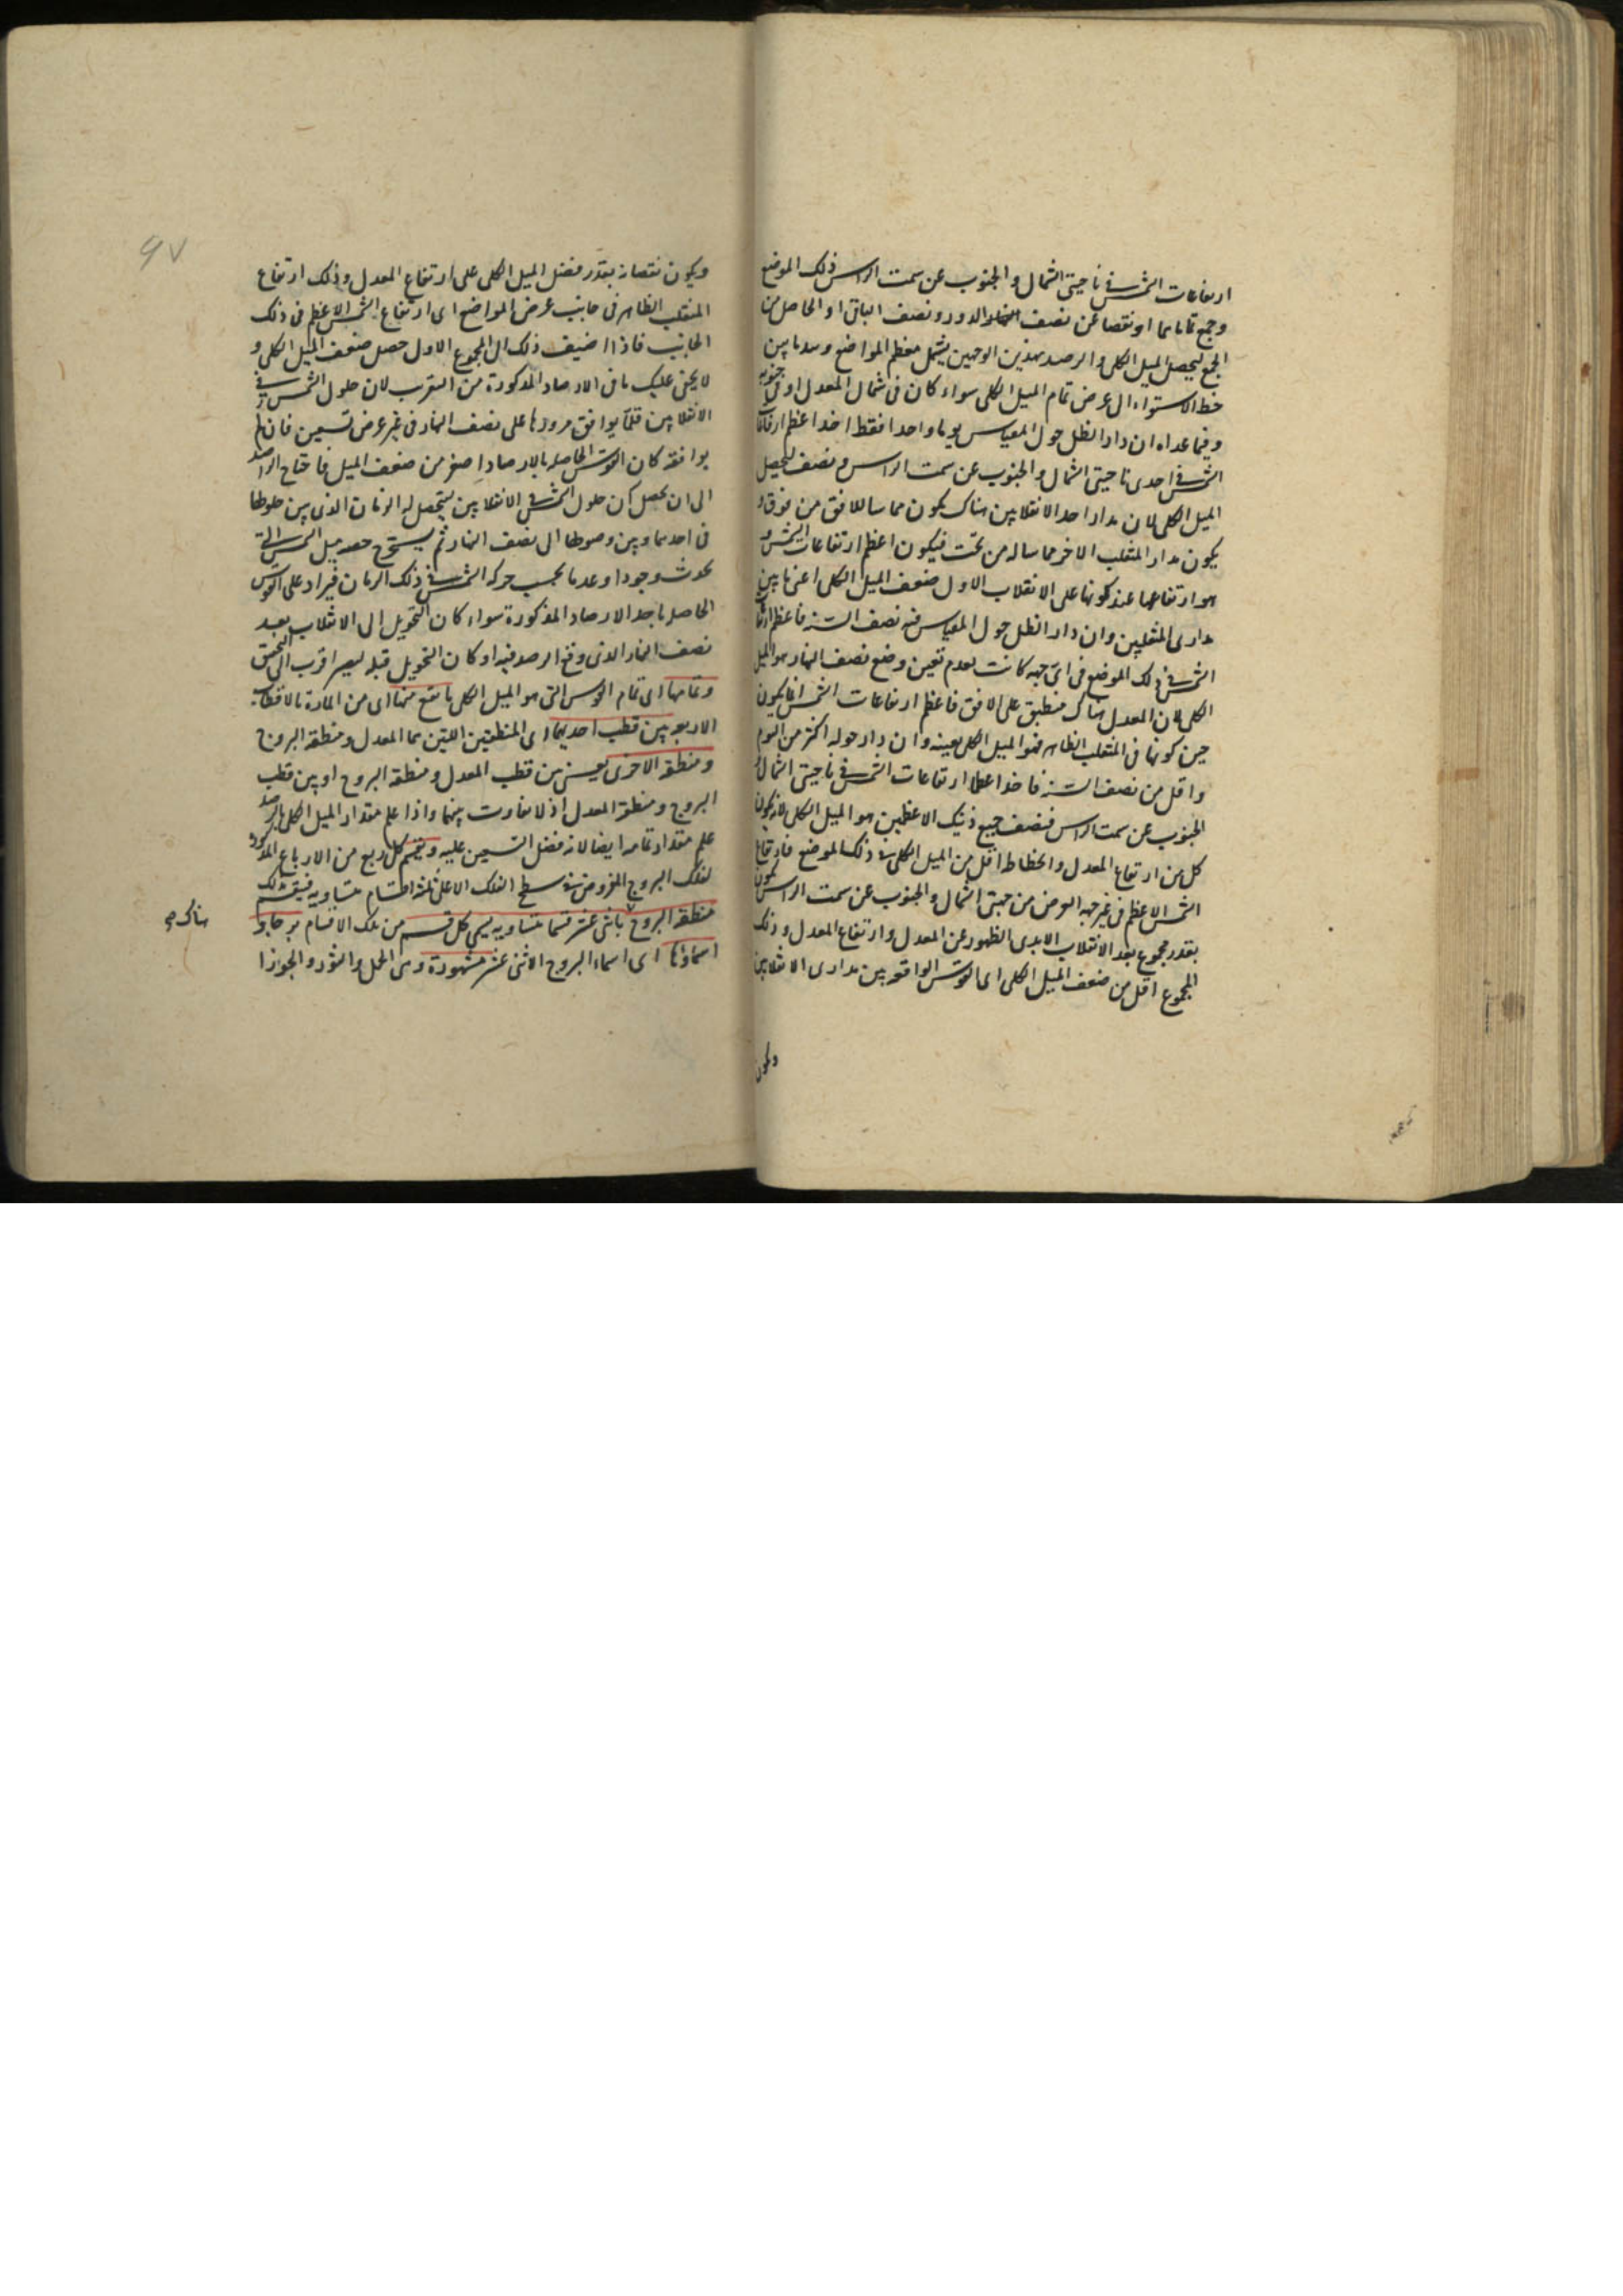 ارتفاعات الشمس فى ناحيتى الشمال والجنوب عن سمت الراس ذلك الموضع
وجمع تماماهما او نقصا عن نصف الدور ونصف الباقى او الحاصل من
الجمع ليحصل الميل الكلى والرصد بهذين الوجهين يشمل معظم المواضع وهو ما بين
خط الاستواء الى عرض تمام الميل الكلى سواء كان فى شمال المعدل او فى جنوبه
وفيما عداه ان دار الظل حول المقياس يوما واحدا فقط اخذ اعظم ارتفاعات
الشمس فى احدى ناحيتى الشمال والجنوب عن سمت الراس ونصف ليحصل
الميل الكلى لان مدار احد الانقلابين هناك يكون مماسا للافق من فوق و
يكون مدار المنقلب الاخر مماسا له من تحت فيكون اعظم ارتفاعات الشمس و
هو ارتفاعها عند كونها على الانقلاب الاول ضعف الميل الكلى اعنى ما بين
مدارى المنقلبين وان دار الظل حول المقياس فيه نصف السنة فاعظم ارتفاع
الشمس فى ذلك الموضع فى اى جهة كانت لعدم تعين وضع نصف النهار هو الميل
الكلى لان المعدل هناك منطبق على الافق فاعظم ارتفاعات الشمس انما يكون
حين كونها فى المنقلب الظاهر فهو الميل الكلى بعينه وان دار حوله اكثر من اليوم
واقل من نصف السنة فاخذ اعظما ارتفاعات الشمس فى ناحيتى الشمال و
الجنوب عن سمت الراس فنصف جميع ذينك الاعظمين هو الميل الكلى لانه يكون
كل من ارتفاع المعدل وانحطاطه اقل من الميل الكلى فى ذلك الموضع فارتفاع
الشمس الاعظم فى غير جهة العرض من جهتى الشمال والجنوب عن سمت الراس يكون
بقدر مجموع بعد الانقلاب الابدى الظهور عن المعدل وارتفاع المعدل وذلك
المجموع اقل من ضعف الميل الكلى اى القوس الواقعة بين مدارى الانقلابين
ويكون
٩٧
ويكون نقصانه بقدر فضل الميل الكلى على ارتفاع المعدل وذلك ارتفاع
المنقلب الظاهر فى جانب عرض المواضع اى ارتفاع الشمس الاعظم فى ذلك
الجانب فاذا اضيف ذلك الى المجموع الاول حصل ضعف الميل الكلى و
لا يخفى عليك ما فى الارصاد المذكورة من التقرب لان حلول الشمس فى
الانقلابين قلما يوافق مرورها على نصف النهار فى غير عرض تسعين فان لم
يوافقه كان القوس الحاصلة بالارصاد اصغر من ضعف الميل فاحتاج الراصد
الى ان يحصل ان حلول الشمس فى الانقلابين ليتحصل له الزمان الذى بين حلولها
فى احدهما وبين وصولها الى نصف النهار ثم يستخرج حصة ميل الشمس التى
تحدث وجودا وعدما بحسب حركة الشمس فى ذلك الزمان فيزاد على القوس
الحاصلة باحد الارصاد المذكورة سواء كان التحويل الى الانقلاب بعد
نصف النهار الذى وقع الرصد فيه او كان التحويل قبله ليصير اقرب الى التحقيق
وتمامها اى تمام القوس التى هو الميل الكلى ما تقع منها اى من المارة بالاقطاب
الاربعة بين قطب احديهما اى المنطقتين اللتين هما المعدل ومنطقة البروج
ومنطقة الاخرى يعنى بين قطب المعدل ومنطقة البروج او بين قطب
البروج ومنطقة المعدل اذ لا تفاوت بينهما واذا علم مقدار الميل الكلى بالرصد
علم مقدار تمامه ايضا لانه فضل التسعين عليه ويقسم كل ربع من الارباع المذكورة
لفلك البروج المفروض فى سطح الفلك الاعلى بثلثة اقسام متساوية فينقسم تلك
منطقة البروج باثنى عشر قسما متساوية يسمى كل قسم من تلك الاقسام برجا و
هناك صح
اسماؤها اى اسماء البروج الاثنى عشر مشهورة وهى الحمل والثور والجوزا